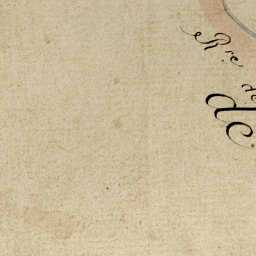 R.re de
de